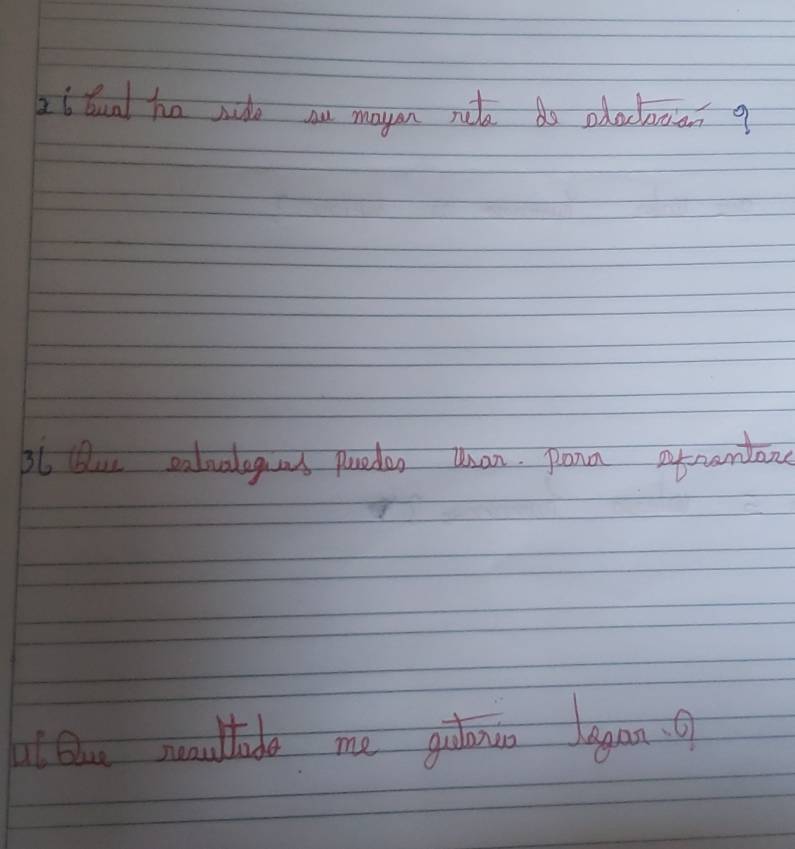 2 ¿Cual ha sido su mayor reto de adactacion?
3 ¿Que estrategias puedes usar. para afrontare
4 ¿Que resultado me gutaria legar.?